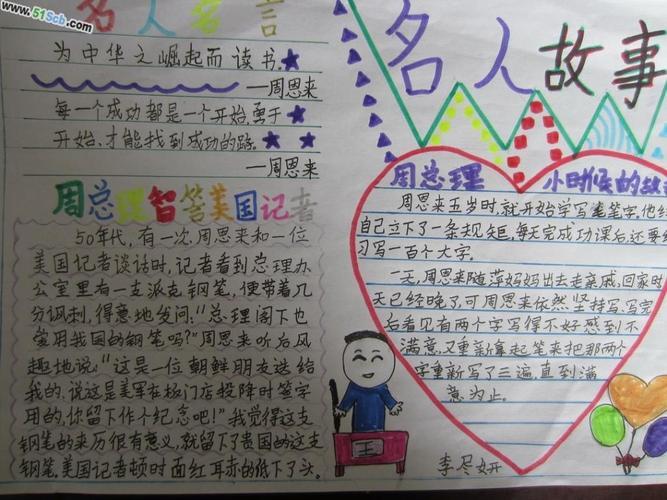 www.51Scb.com
名人名言
为中华之崛起而读书.
—周恩来
每一个成功都是一个开始,勇于
开始,才能找到成功的路.
—周恩来
周总理智答美国记者
50年代,有一次,周恩来和一位
美国记者谈话时,记者看到总理办
公室里有一支派克钢笔,便带着几
分讽刺,得意地发问:“总理阁下也
常用我国的钢笔吗?”周恩来听后风
趣地说:“这是一位朝鲜朋友送给
我的.说这是美军在板门店投降时签字
用的,你留下作个纪念吧!”我觉得这支
钢笔的来历很有意义,就留下了贵国的这支
钢笔.美国记者顿时面红耳赤的低下了头.
名人故事
周总理 小时候的故
周恩来五岁时,就开始学写毛笔字.他给
自己立下了一条规矩,每天完成功课后还要练
习写一百个大字.
一天,周恩来随萍妈妈出去走亲戚,回家时
天已经晚了,可周恩来依然坚持写.写完
后看见有两个字写得不好感到不
满意,又重新拿起笔来把那两个
字重新写了三遍,直到满
意为止.
王
李尽妍